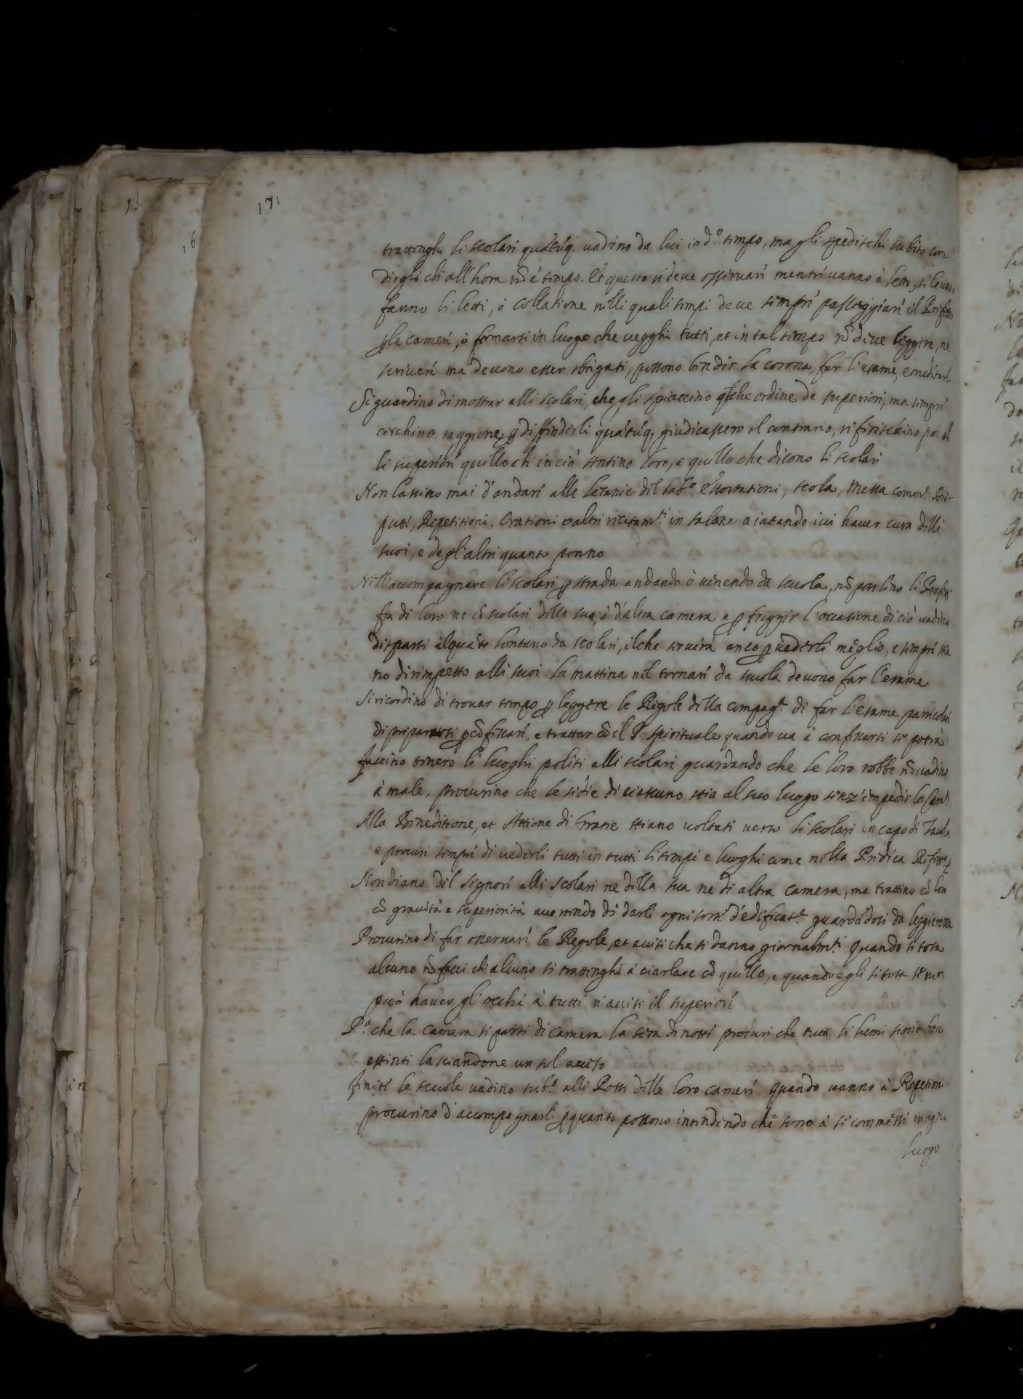 171
trattenghi li scolari quãtũq. vadino da lui in d.º tempo, ma gli spedischi subito con
dirgli ch'all'hora nõ è tempo. E questo si deve osservare mentre vanno à letto, si levano
fanno li letti, ò collatione nelli quali tempi deve sempre passeggiare il Prefetto
p le camere, ò fermarsi in luogo che vegghi tutti, et in tal tempo nõ deve leggere, ne
scrivere ma devono esser sbrigati, possono ben dir la corona, far l'esame, e meditare
Si guardino di mostrar alli scolari, che gli spiaccino q̃lche ordine de superiori, ma sempre
cerchino raggione p diffenderli quãtũq. giudicassero il contrario, riferischino poi al
li superiori quello ch'in ciò sentino loro, e quello che dicono li scolari
Non lassino mai d'andare alle letanie del sab.to Essortationi, scola, Messa comm.e Dis-
pute, Repetitioni, Orationi et altri recitam.ti in salone aiutando ivi haver cura delli
suoi, e degl'altri quanto ponno
Nell'accompagnare li scolari p strada andando ò venendo da scuola, nõ parlino li Prefet-
ti fra di loro ne cõ scolari della sua, ò d'altra camera e p fuggir l'occasione di ciò vadino
disparte alquãto lontano da scolari, il che servirà anco p vederli meglio, e sempre stia
no dirimpetto alli suoi. La mattina nel tornare da scuola devono far l'esame
Si ricordino di trovar tempo p leggere le Regole della compag.a di far l'esame particolar
di prepararsi p cõfessare, e trattar cõ il P. spirituale quando va à confessarsi se potrà
faccino tenere li luoghi politi alli scolari guardando che le loro robbe nõ vadino
à male, procurino che le sedie di ciascuno stia al suo luogo senz'impedir la Cam.a
Alla Beneditione, et Attione di Gratie stiano voltati verso li scolari in capo di Tavola
e procuri sempre di vederli tutti in tutti li tempi e luoghi come nella Predica Refett.o
Non diano del signore alli scolari ne della sua ne di altra camera, ma trattino cõ loro
cõ gravità e superiorità avvertendo di darli ogni sorte d'edificat.e guardãdosi da leggierezza
Procurino di far osservare le Regole, et avisi che si danno giornalm.te Quando si tosa
alcuno nõ facci ch'alcuno si trattenghi à ciarlare cõ quello, e quando egli si tosa se non
può haver gl'occhi à tutti n'avisi il superiore
P.a che la camera si parti di camera la sera di notte procuri che tutti li lumi siano ben
estinti lasciandone un sol acceso
finite le scuole vadino sub.o alli Posti delle loro camere. Quando vanno à Repetit.ne
procurino d'accompagnarli p quanto possono intendendo che sono à si commessi in ogni
luogo